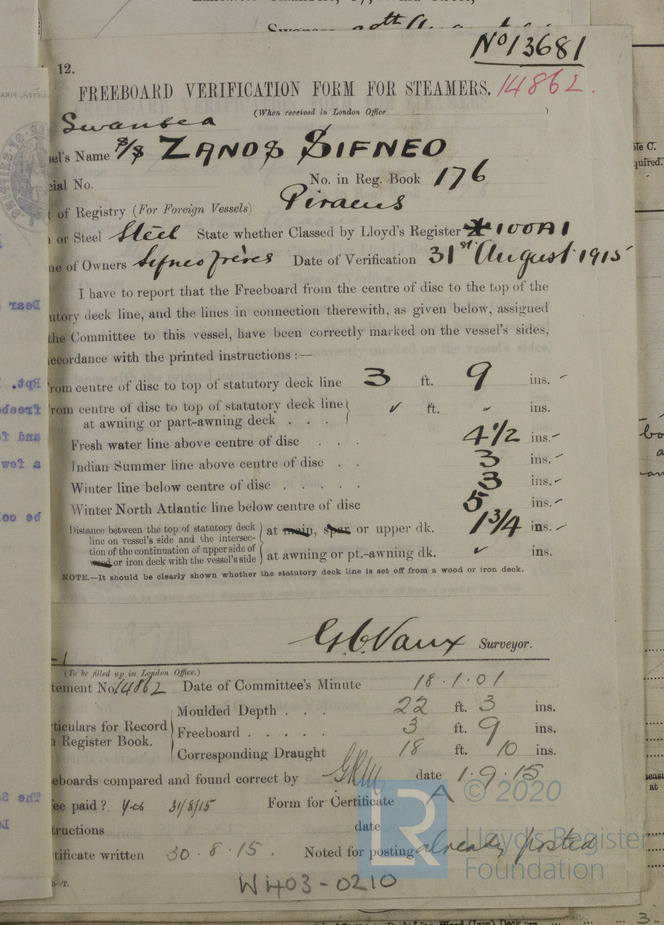 No 13681
12.
FREEBOARD VERIFICATION FORM FOR STEAMERS. 14862.
(When received in London Office )
Swansea
el's Name S/S ZANOS SIFNEO
cial No. No. in Reg. Book 176
t of Registry (For Foreign Vessels) Piraeus
or Steel Steel State whether Classed by Lloyd's Register 100A1
ne of Owners Sifneo frères Date of Verification 31st August 1915
I have to report that the Freeboard from the centre of disc to the top of the
utory deck line, and the lines in connection therewith, as given below, assigned
the Committee to this vessel, have been correctly marked on the vessel's sides,
ccordance with the printed instructions :—
rom centre of disc to top of statutory deck line 3 ft. 9 ins.
rom centre of disc to top of statutory deck line ✓ ft. „ ins.
at awning or part-awning deck . . .
Fresh water line above centre of disc . . . 4½ ins.
Indian Summer line above centre of disc . . 3 ins.
Winter line below centre of disc . . . . . 3 ins.
Winter North Atlantic line below centre of disc 5 ins.
Distance between the top of statutory deck
line on vessel's side and the intersec- at main, spar or upper dk. 1¾ ins.
tion of the continuation of upper side of
wood or iron deck with the vessel's side at awning or pt.-awning dk. ✓ ins.
NOTE.—It should be clearly shown whether the statutory deck line is set off from a wood or iron deck.
G.C. Vaux Surveyor.
(To be filled up in London Office.)
tement No. 14862 Date of Committee's Minute 18.1.01
Moulded Depth . . . 22 ft. 3 ins.
ticulars for Record
Register Book. Freeboard . . . . . 3 ft. 9 ins.
Corresponding Draught 18 ft. 10 ins.
eboards compared and found correct by date 1.9.15
ee paid? 31/8/15 Form for Certificate A
tructions date
tificate written 30.8.15. Noted for posting already posted
W403-0210
© 2020
Lloyd's Register
Foundation